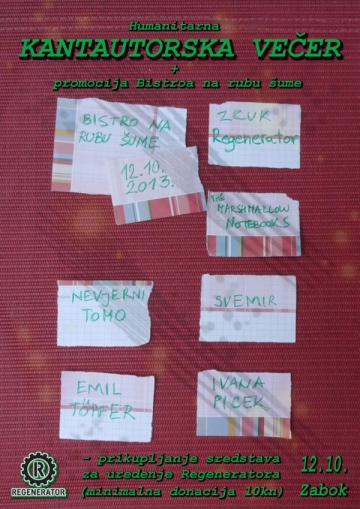 Humanitarna
KANTAUTORSKA VEČER
+
promocija Bistroa na rubu šume
BISTRO NA
RUBU ŠUME
12.10.
2013.
ZCUK
Regenerator
THE
MARSHMALLOW
NOTEBOOKS
NEVJERNI
TOMO
SVEMIR
EMIL
TÖPFER
IVANA
PICEK
- prikupljanje sredstava
za uređenje Regeneratora
(minimalna donacija 10kn)
12.10.
Zabok
R
REGENERATOR